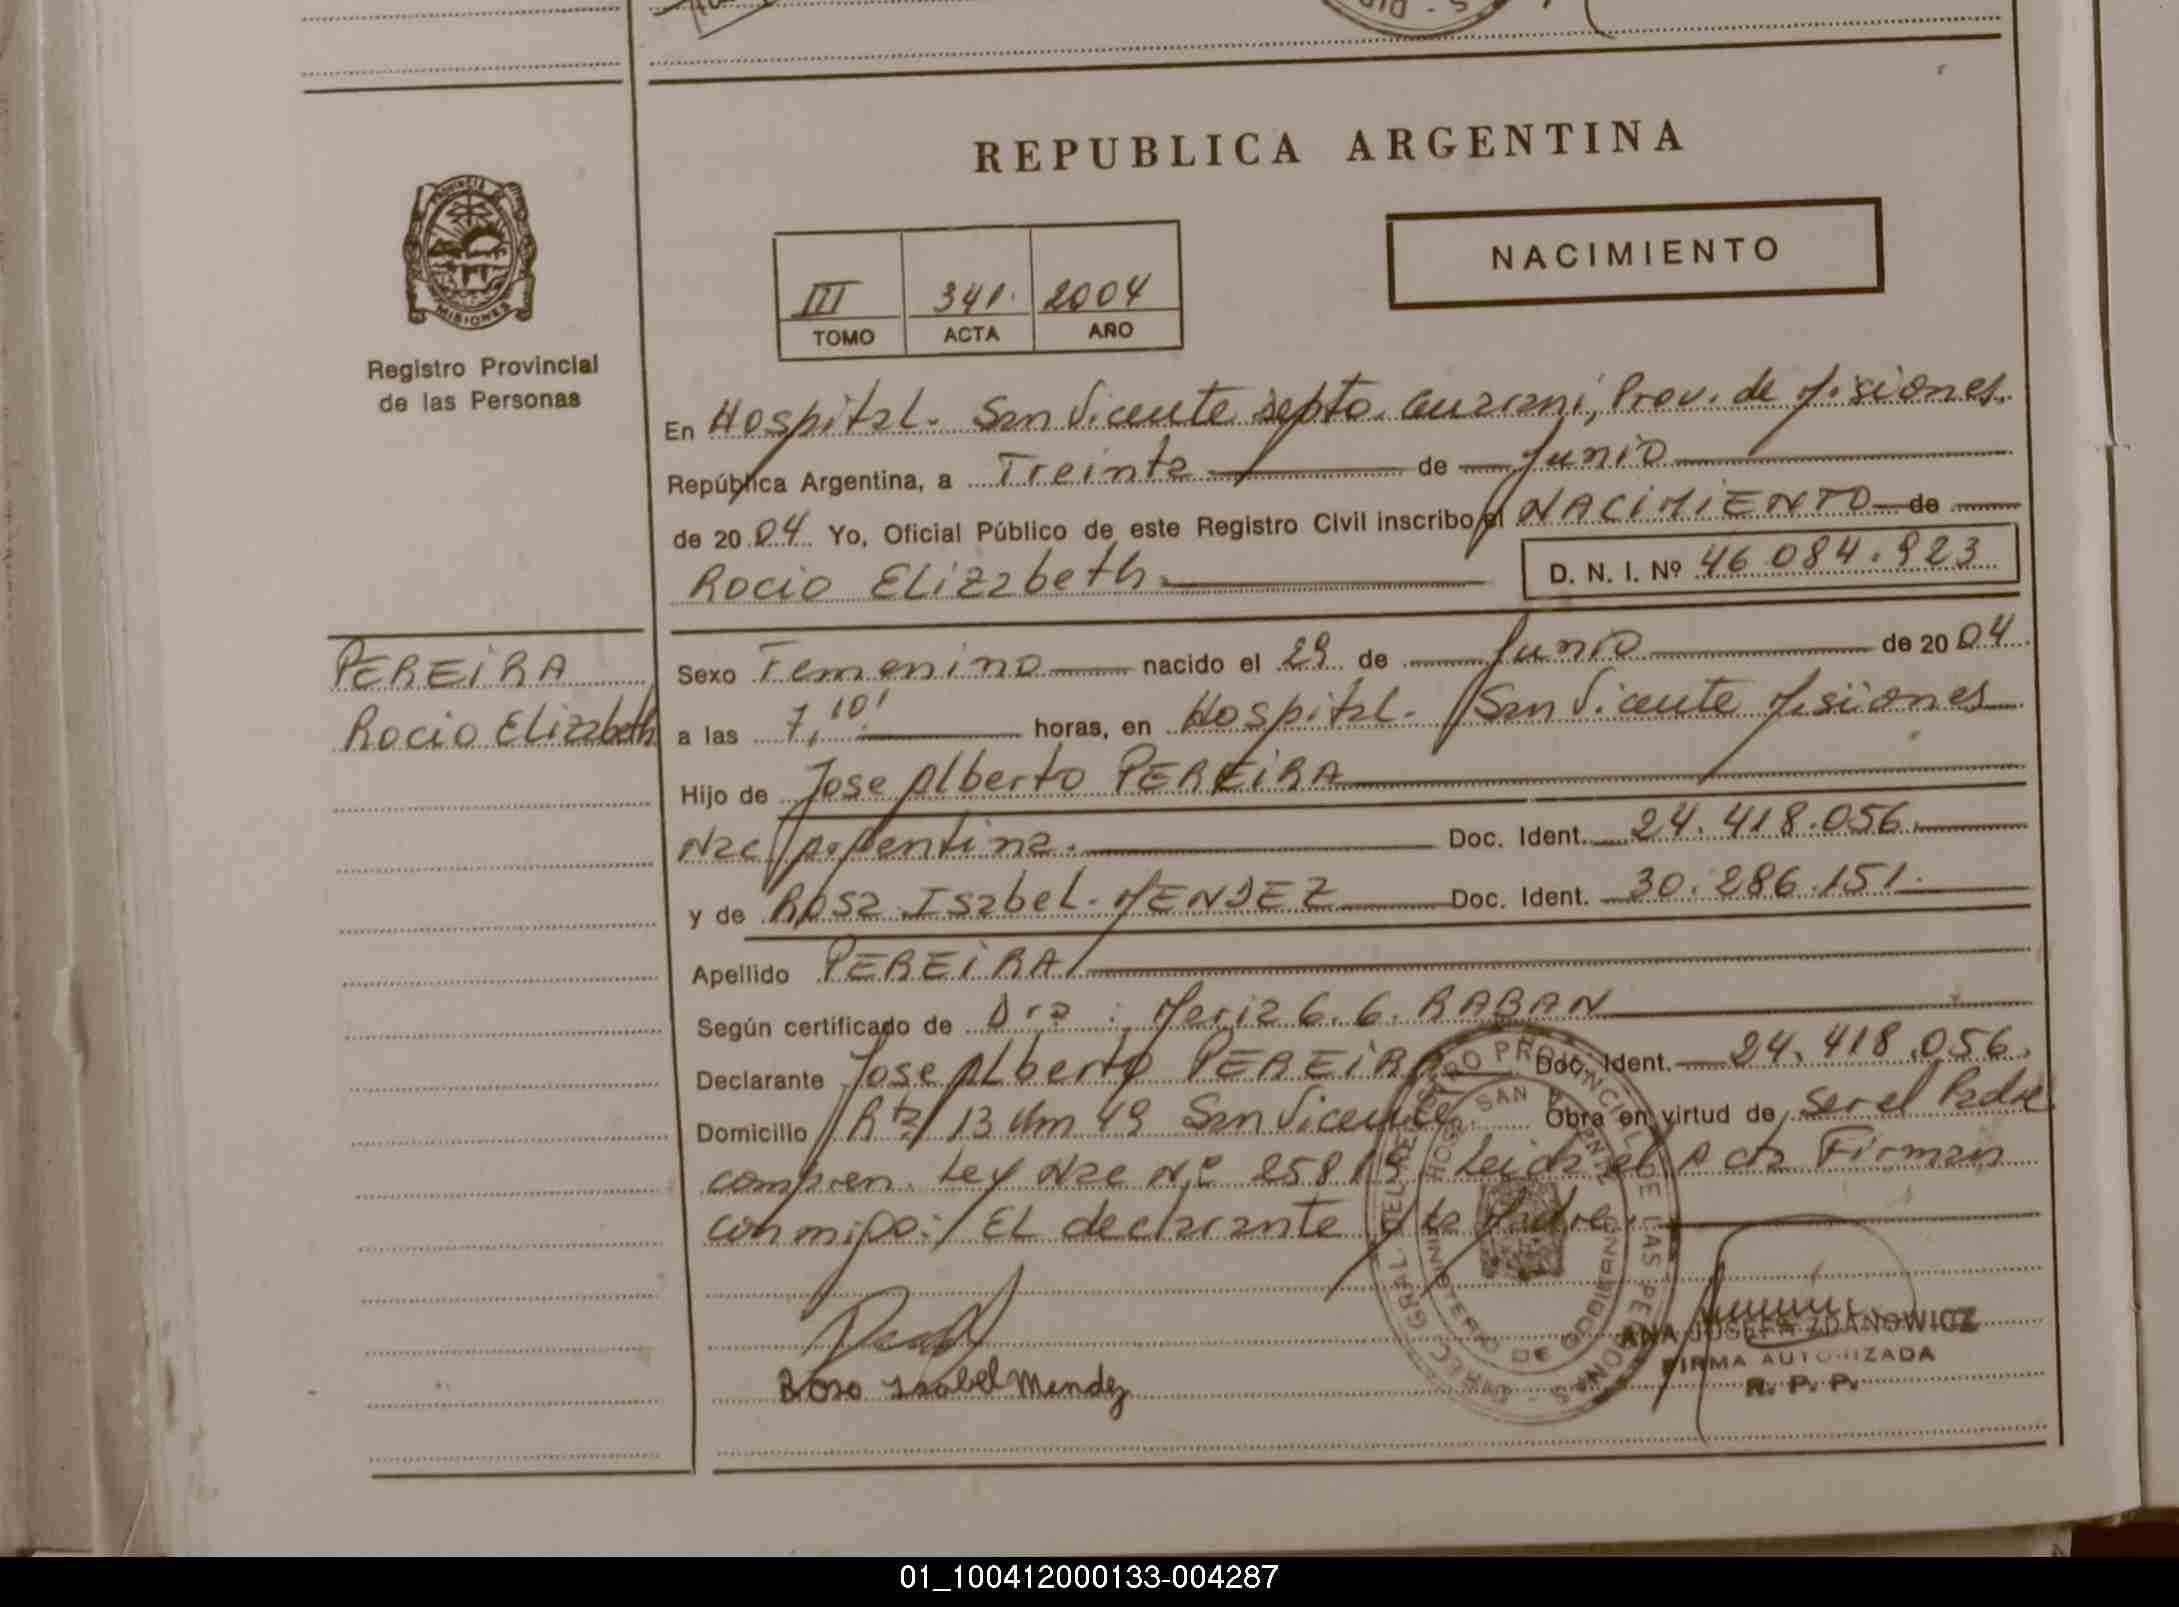 REPUBLICA ARGENTINA
NACIMIENTO
III 341. 2004
TOMO ACTA AÑO
PROVINCIA
MISIONES
Registro Provincial
de las Personas
En Hospital. San Vicente Depto. Guarani, Prov. de Misiones.
República Argentina, a Treinta de Junio
de 2004 Yo, Oficial Público de este Registro Civil inscribo el NACIMIENTO de
Rocio Elizabeth. D. N. I. Nº 46.084.923
PEREIRA
Rocio Elizabeth
Sexo Femenino nacido el 29 de Junio de 2004
a las 7,10' horas, en Hospital. San Vicente Misiones
Hijo de Jose Alberto PEREIRA
Nac Argentina. Doc. Ident. 24.418.056.
y de Rosa Isabel. MENDEZ Doc. Ident. 30.286.151.
Apellido PEREIRA
Según certificado de Dra: Maria G. G. RABAN
Declarante Jose Alberto PEREIRA Doc. Ident. 24.418.056.
Domicilio Rta 13 Km 49 San Vicente. Obra en virtud de ser el Padre
compren. Ley Nac Nº 25819 Leida el Acta Firman
conmigo: El declarante y la Madre.
Rosa Isabel Mendez
ANA JOSEFA ZDANOWICZ
FIRMA AUTORIZADA
R. P. P.
DIREC. GRAL. DEL REGISTRO PROVINCIAL DE LAS PERSONAS
HOSP. SAN VICENTE
MINISTERIO DE GOBIERNO
01_100412000133-004287